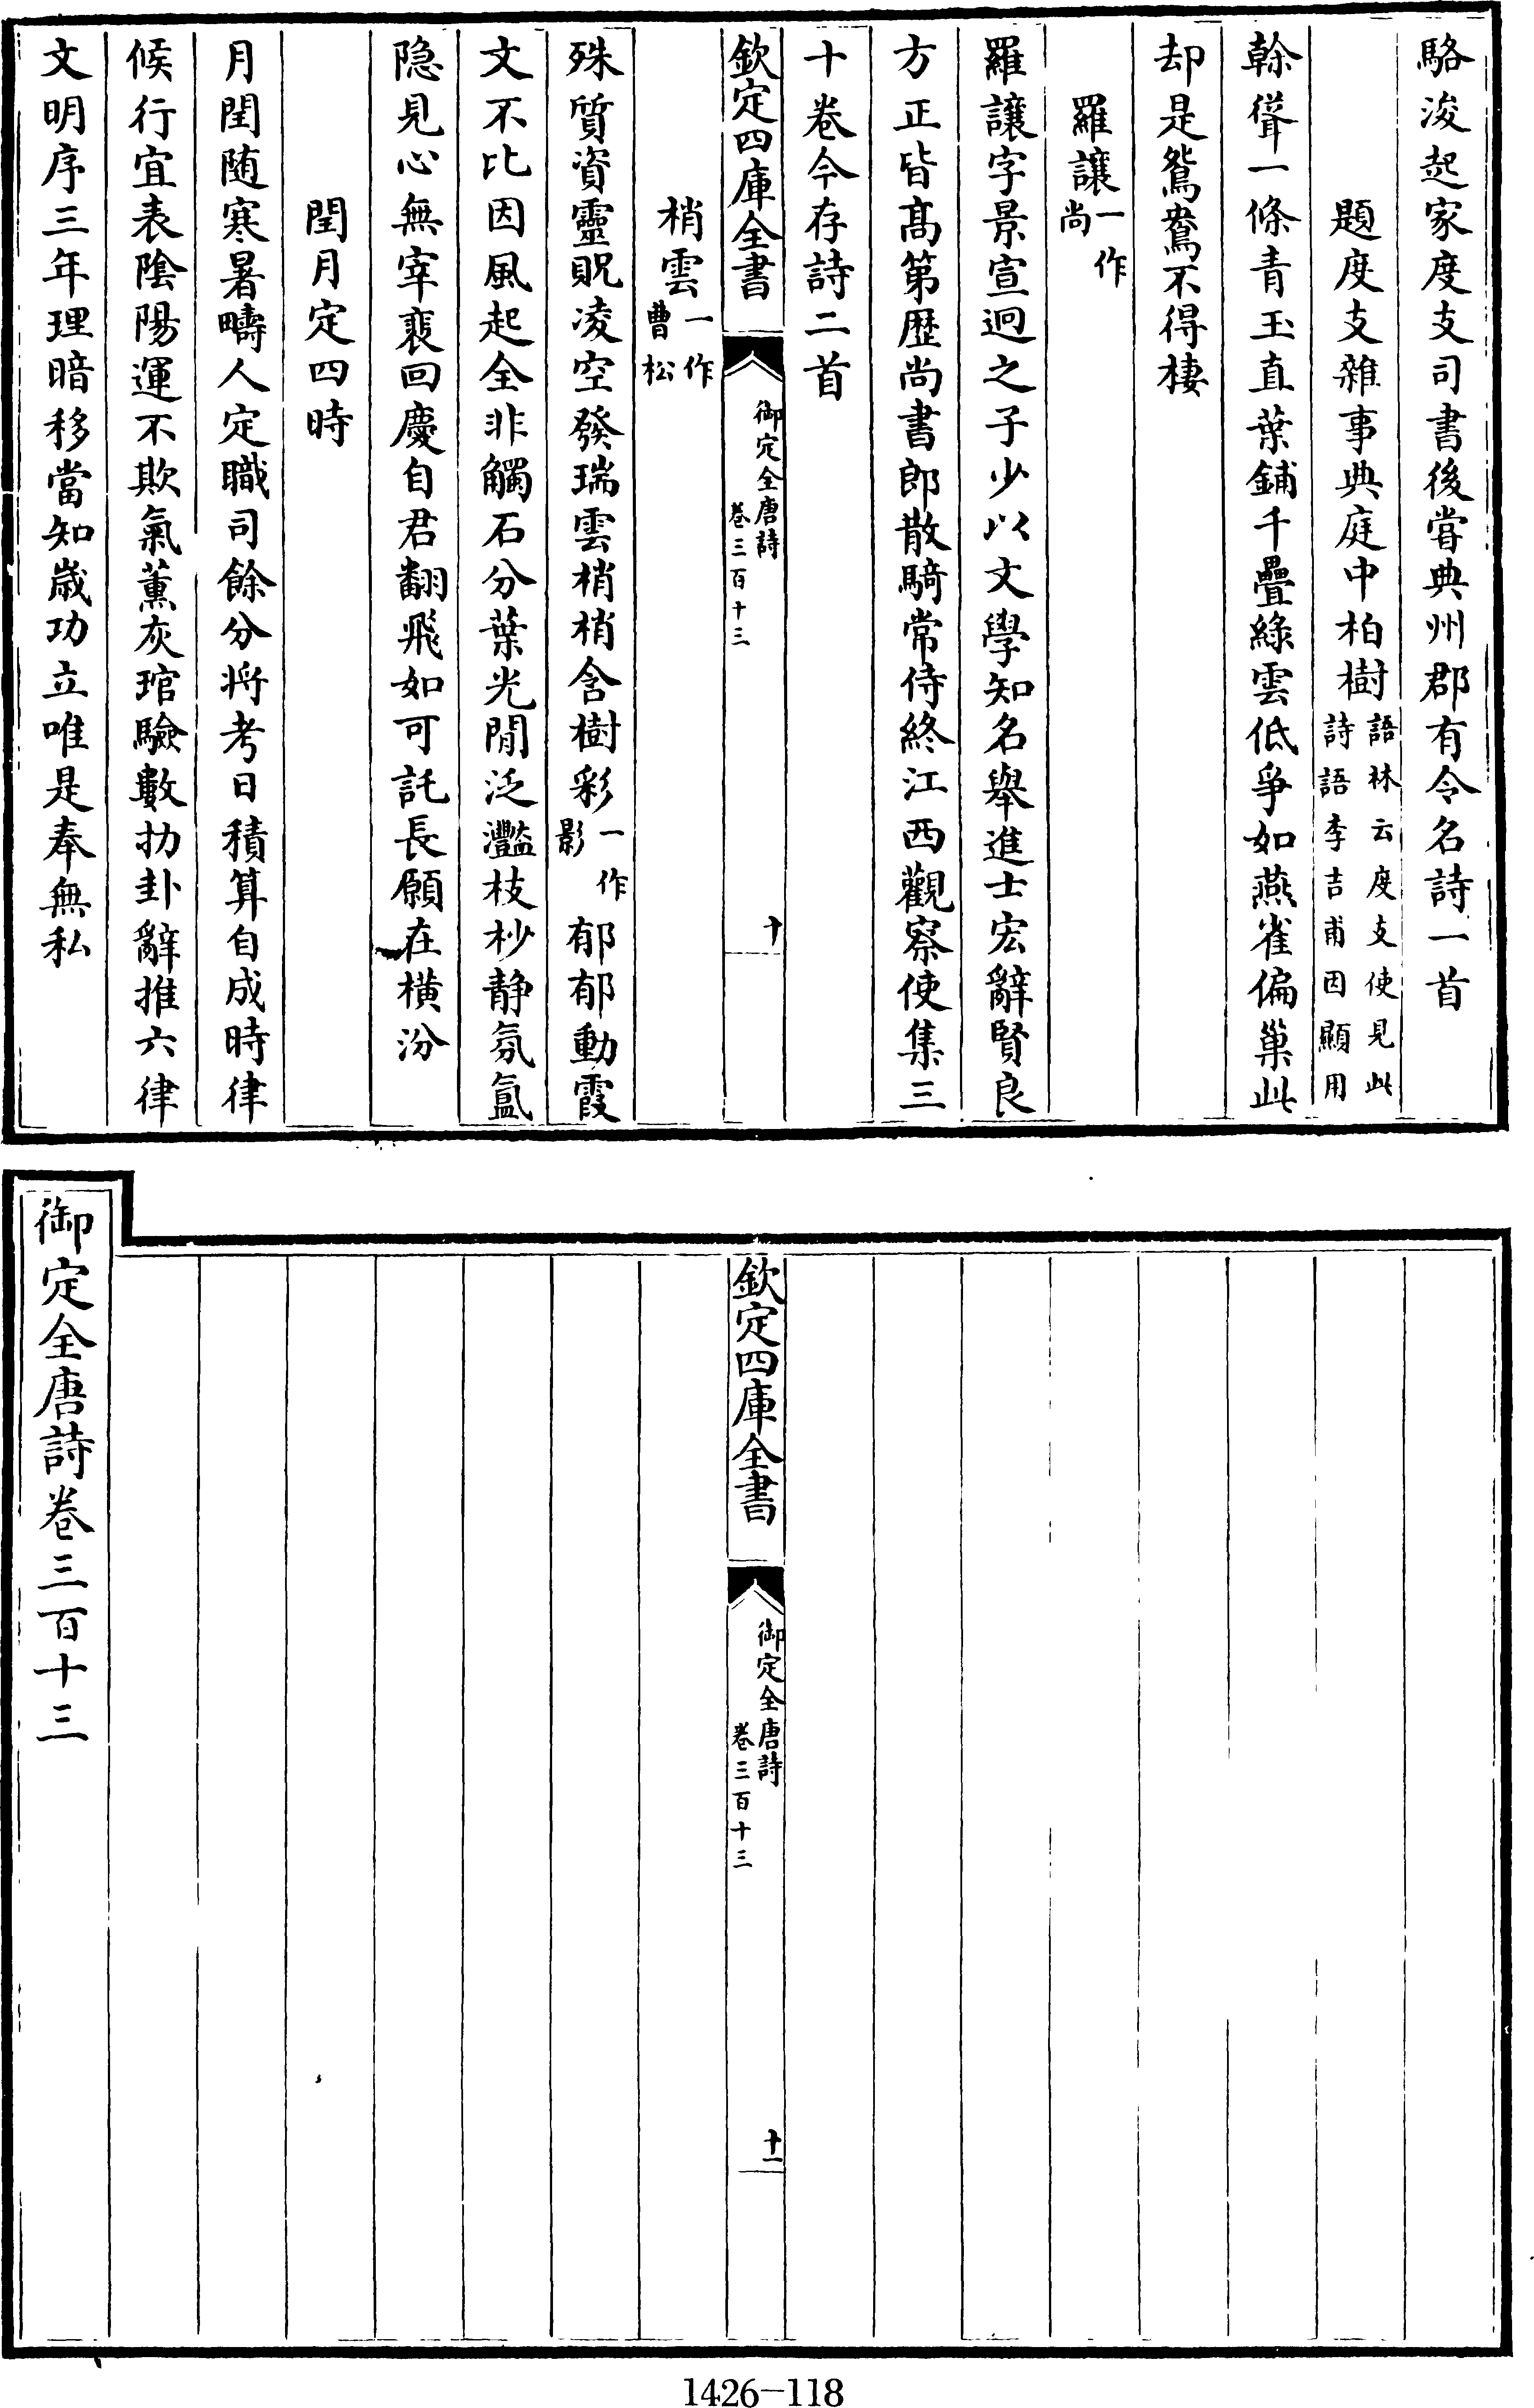 駱浚起家度支司書後嘗典州郡有令名詩一首
題度支雜事典庭中柏樹語林云度支使見此詩語李吉甫因顯用
榦聳一條青玉直葉鋪千疊緑雲低爭如燕雀偏巢此
却是鴛鴦不得棲
羅讓一作尚
羅讓字景宣迥之子少以文學知名舉進士宏辭賢良
方正皆髙第歴尚書郎散騎常侍終江西觀察使集三
十卷今存詩二首
欽定四庫全書
御定全唐詩
卷三百十三
十
梢雲一作曹松
殊質資靈貺凌空發瑞雲梢梢含樹彩一作影郁郁動霞
文不比因風起全非觸石分葉光閒泛灩枝杪静氛氲
隐見心無宰裴回慶自君翻飛如可託長願在横汾
閏月定四時
月閏随寒暑疇人定職司餘分将考日積算自成時律
候行宜表隂陽運不欺氣薰灰琯驗數扐卦辭推六律
文明序三年理暗移當知嵗功立唯是奉無私
欽定四庫全書
御定全唐詩
卷三百十三
十一
御定全唐詩卷三百十三
1426-118